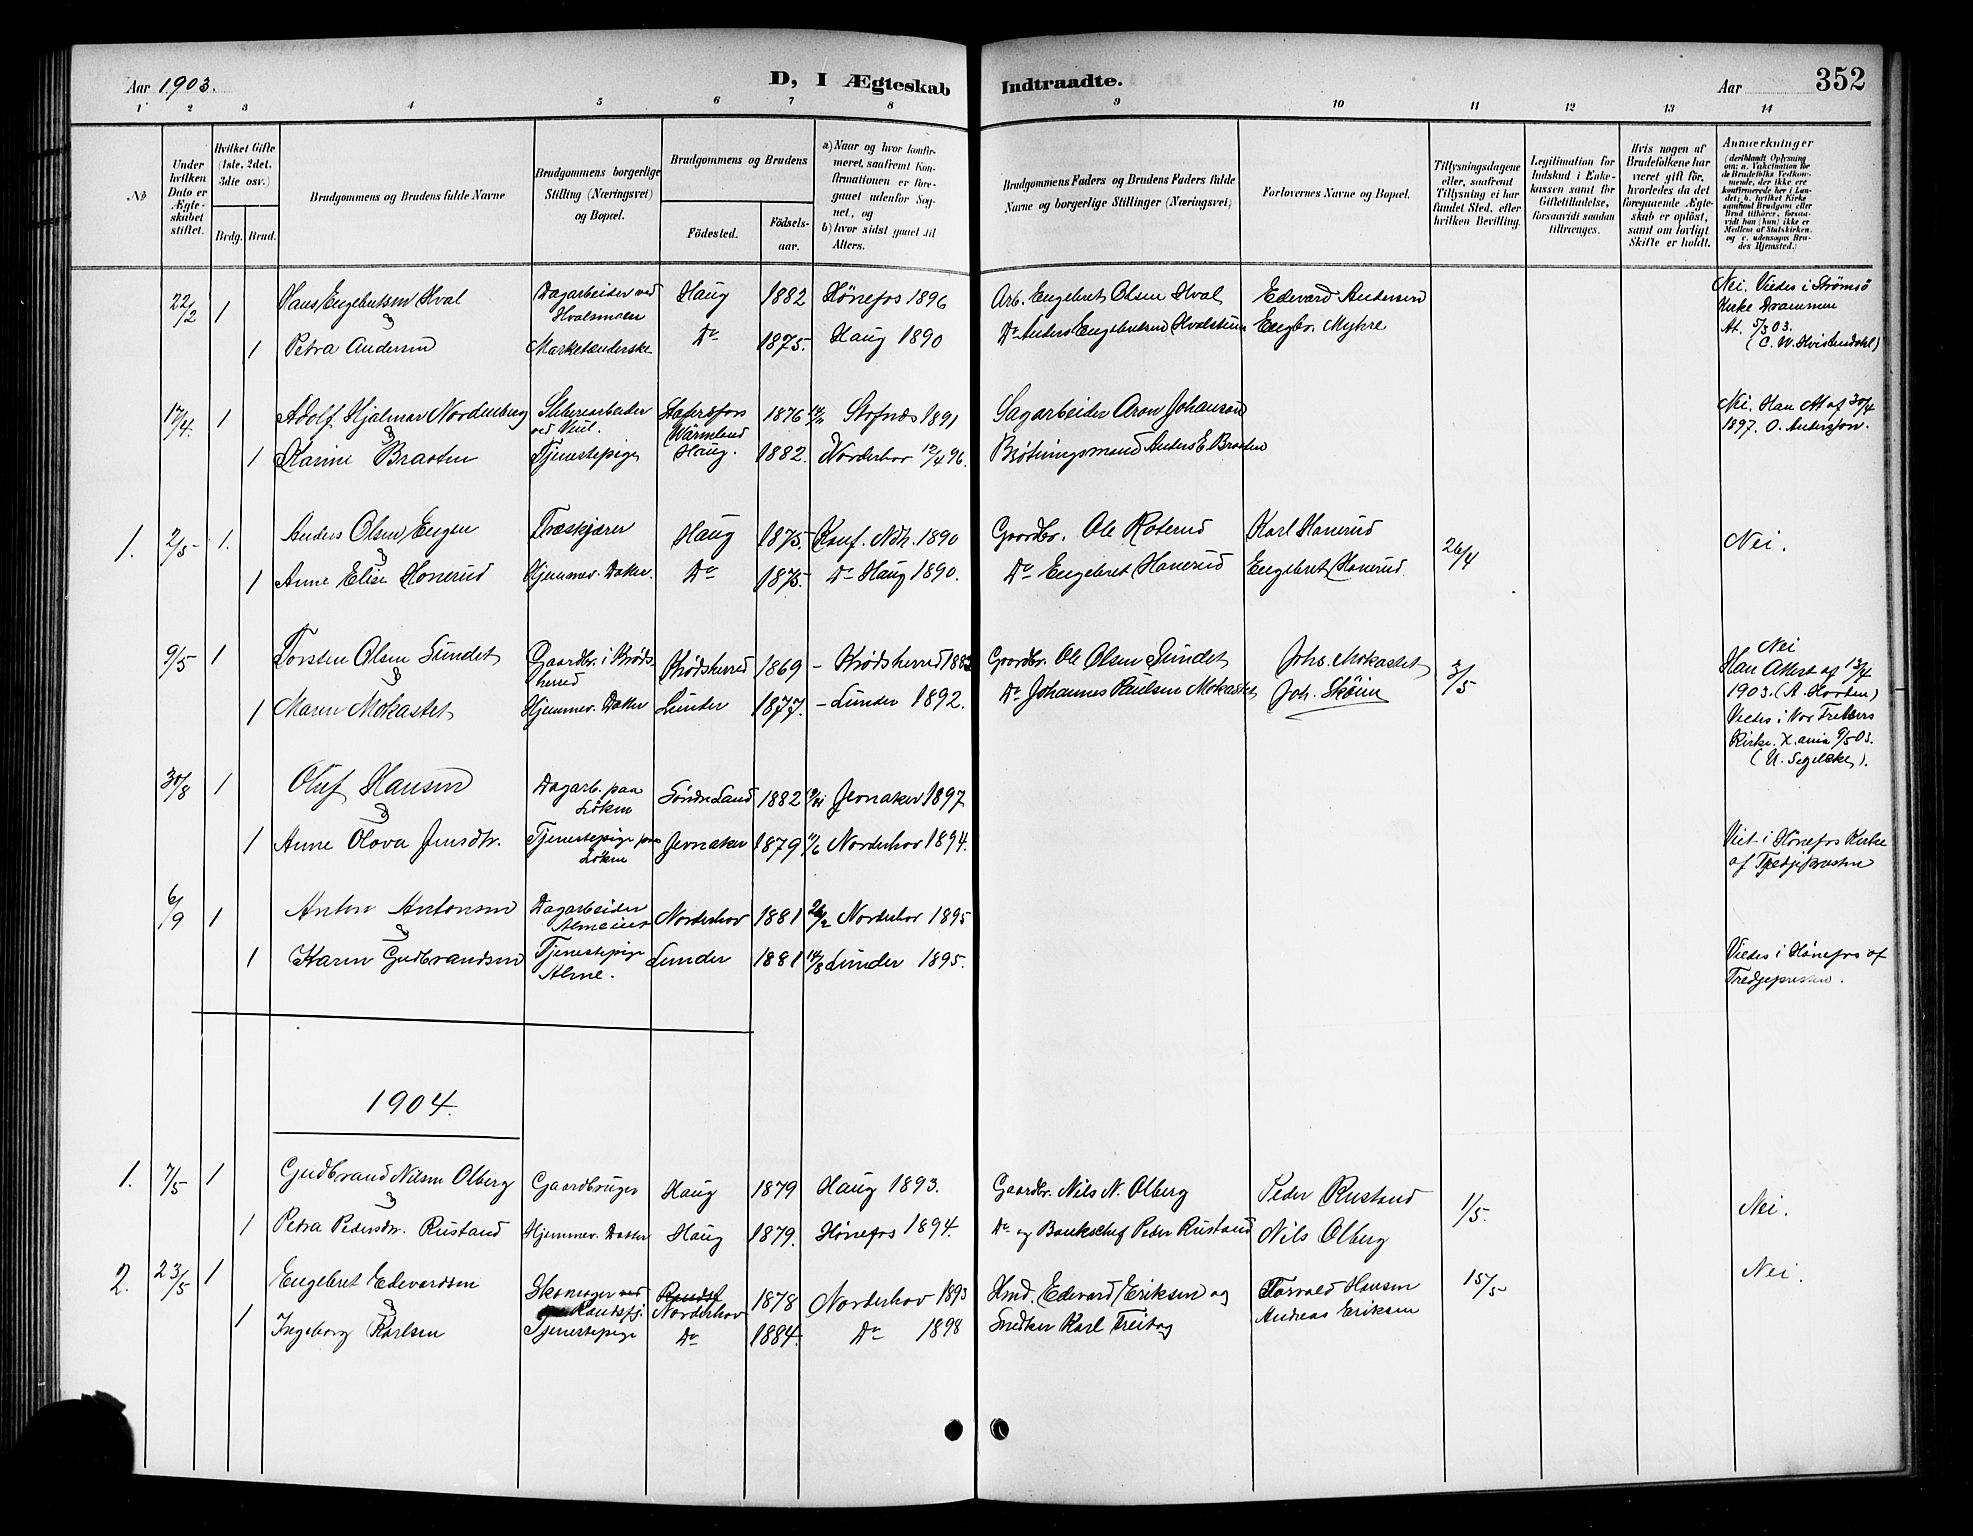 Aar 1903.
D, I Ægteskab Indtraadte.
Aar 352
1 2 3 4 5 6 7 8 9 10 11 12 13 14
No
Under hvilken Dato er Ægteskabet stiftet.
Hvilket Gifte (1ste, 2det, 3die osv.)
Brdg. Brud.
Brudgommens og Brudens fulde Navne
Brudgommens borgerlige Stilling (Næringsvei) og Bopæl.
Brudgommens og Brudens
Födested. Födsels-aar.
a) Naar og hvor konfirmeret, saafremt Konfirmationen er foregaaet udenfor Sognet, og
b) hvor sidst gaaet til Alters.
Brudgommens Faders og Brudens Faders fulde Navne og borgerlige Stillinger (Næringsvei)
Forlovernes Navne og Bopæl.
Tillysningsdagene eller, saafremt Tillysning ei har fundet Sted, efter hvilken Bevilling.
Legitimation for Indskud i Enkekassen samt for Giftetilladelse, forsaavidt saadan tiltrænges.
Hvis nogen af Brudefolkene har været gift før, hvorledes da det foregaaende Ægteskab er opløst, samt om lovligt Skifte er holdt.
Anmærkninger
22/2 1 Hans Engebretsen Hval Dagarbeider ved Hvalsmoen Haug 1882 Hönefos 1896 Arb. Engebret Olsen Hval Edvard Andersen
Nei. Viedes i Strömsö Kirke Drammen At. 5/3 03. (C. W. Hvistendahl)
1 Petra Andersen Marketenderske Do 1875. Haug 1890 Do Anders Engebretsen Hvalstuen Engbr. Myhre
17/4. 1 Adolf Hjalmar Nordenberg Sliberiarbeider ved Veul. Hagersfors Wärmland 1876 Stofnæs 1891 Sagarbeider Aron Johanson
Nei. Han At af 30/4 1897. O. Andersson.
1 Karine Braaten Tjenestepige Haug. 1882. Norderhov 12/4 96. Brötningsmand Anders E. Braaten
1. 2/5 1. Anders Olsen Engen Træskjærer Haug 1875. Konf. Ndh. 1890 Gaardbr. Ole Roterud Karl Honerud 26/4 Nei.
1 Anne Elise Honerud Hjemmev. Datter. Do 1875. Do Haug 1890. Do Engebret Honerud Engebret Honerud
9/5 1 Torsten Olsen Sundet Gaardbr. i Krödsherred Krödsherred 1869 - Krödsherred 1883 Gaardbr. Ole Olsen Sundet Johs. Mokastet 3/5
Nei Han Attest af 13/4 1903. (A. Horden) Viedes i Vor Frelsers Kirke. X.ania 9/5 03.
1 Maren Mokastet Hjemmev. Datter Lunder 1877. - Lunder 1892. Do Johannes Paulsen Mokastet Joh. Sköien
30/8 1 Oluf Hansen Dagarb. paa Löken Söndre Land 1882 Jevnaker 1897
1 Anne Olava Jensdtr. Tjenestepige paa Löken Jevnaker 1879 Norderhov 1894.
Viet i Hönefos Kirke af Tredjepresten
6/9 1 Anton Antonsen Dagarbeider Norderhov 1881 Norderhov 1895
1 Karen Gudbrandsen Tjenestepige Alme. Lunder 1881 Lunder 1895.
Viedes i Hönefos af Tredjepresten.
1904.
1. 7/5 1 Gudbrand Nilsen Olberg Gaardbruger Haug 1879 Haug 1893. Gaardbr. Nils N. Olberg Peder Rustand 1/5. Nei.
1 Petra Pedersdtr. Rustand Hjemmev. Datter Haug 1879. Hönefos 1894. Do og Bankchef Peder Rustand Nils Olberg
2. 23/5 1 Engebret Edvardsen Skomager ved Randsfj. Norderhov 1878 Norderhov 1893 Hmd. Edvard Eriksen og Torvald Hansen 15/5 Nei.
1 Ingeborg Karlsen Tjenestepige Do 1884. Do 1898 Snedker Karl Freitag Andreas Eriksen